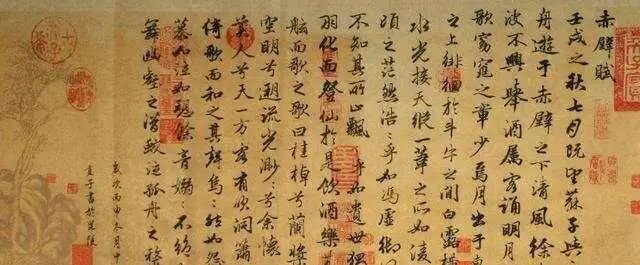 赤壁賦
壬戌之秋七月既望蘇子與
舟遊于赤壁之下清風徐
波不興舉酒屬客誦明月
歌窈窕之章少焉月出于東
之上徘徊於斗牛之間白露橫
水光接天縱一葦之所如凌
頃之茫然浩〻乎如馮虛御
不知其所止飄〻乎如遺世獨
羽化而登仙於是飲酒樂甚
舷而歌之歌曰桂棹兮蘭槳
空明兮溯流光渺〻兮余懷
美人兮天一方客有吹洞簫
倚歌而和之其聲嗚〻然如怨
慕如泣如訴餘音嫋〻不絕
舞幽壑之潛蛟泣孤舟之嫠
歲次丙申冬月中
書於